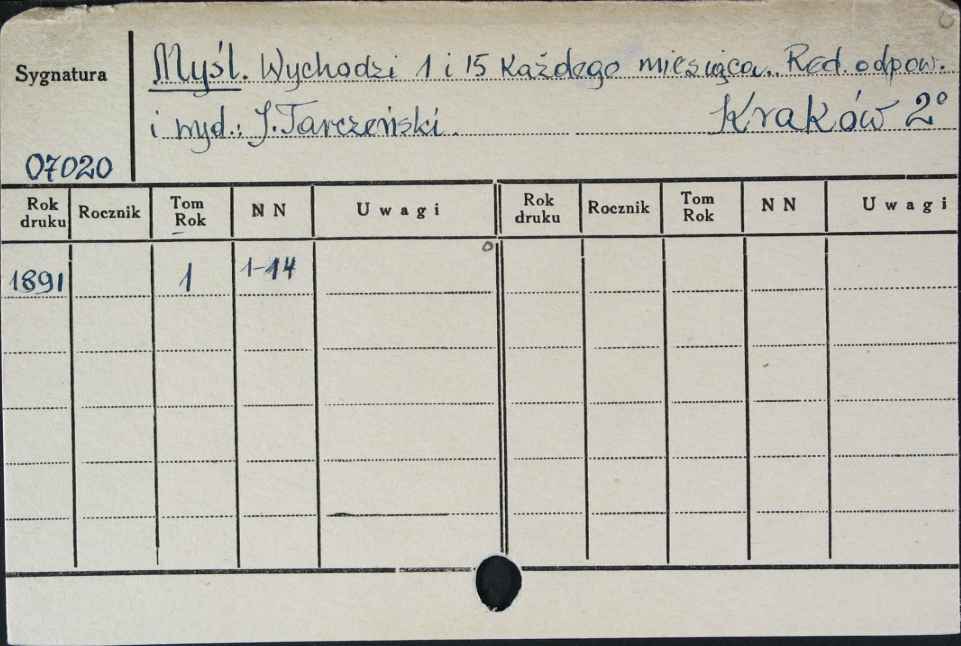 Sygnatura
Myśl. Wychodzi 1 i 15 każdego miesiąca. Red. odpow.
i wyd.: J. Tarczeński. Kraków 2°
07020
Rok druku Rocznik Tom Rok NN Uwagi Rok druku Rocznik Tom Rok NN Uwagi
1891 1 1-14